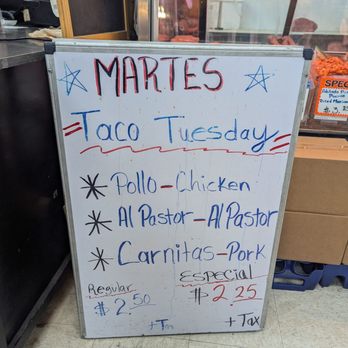 MARTES
Taco Tuesday
Pollo-Chicken
Al Pastor-Al Pastor
Carnitas-Pork
Regular
$2.50
+Tax
Especial
$2.25
+Tax
SPEC